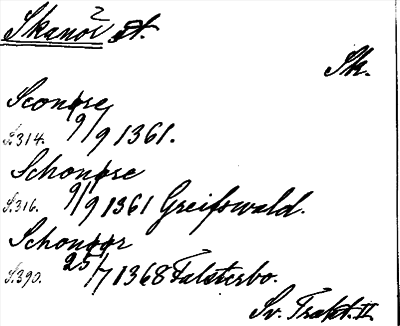 Skanör st.
Sk.
Sconøre
S.314. 9/9 1361.
Schonøre
S.316. 9/9 1361 Greifswald.
Schonøør
S.390. 25/7 1368 Falsterbo.
Sv. Trakt. II